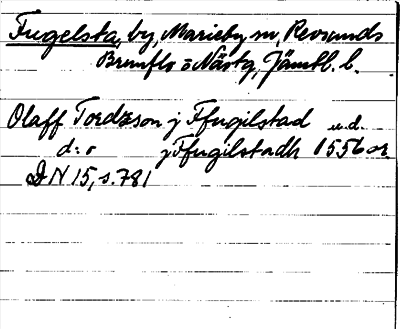 Fugelsta, by, Marieby sn, Revsunds
Brunflo o Näskg, Jämtl. l.
Olaff Tordzson j Ffugilstad u.d.
d:o j Ffugilstadh 1556 or.
DN 15, s. 781